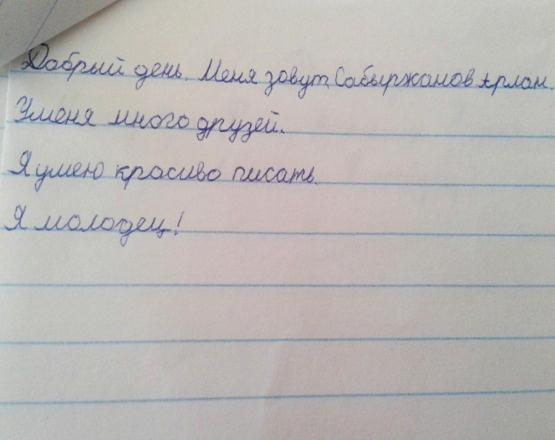 Добрый день. Меня зовут Сабыржанов Арлан.
У меня много друзей.
Я умею красиво писать.
Я молодец!